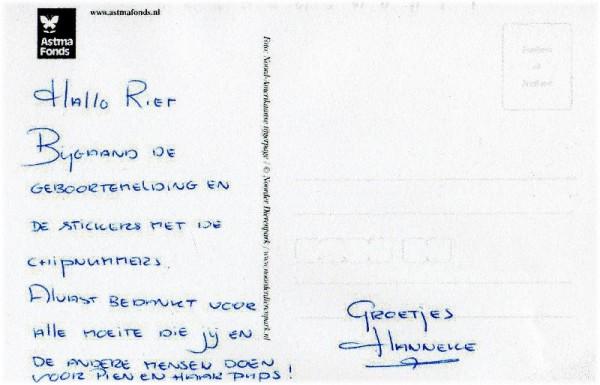 www.astmafonds.nl
Astma
Fonds
Hallo Riet
Bijgaand de
geboortemelding en
de stickers met de
chipnummers.
Alvast bedankt voor
alle moeite die jij en
de andere mensen doen
voor Pien en haar pups!
Foto: Noord-Amerikaanse tijgerpage / © Noorder Dierenpark / www.noorderdierenpark.nl
Groetjes
Hanneke